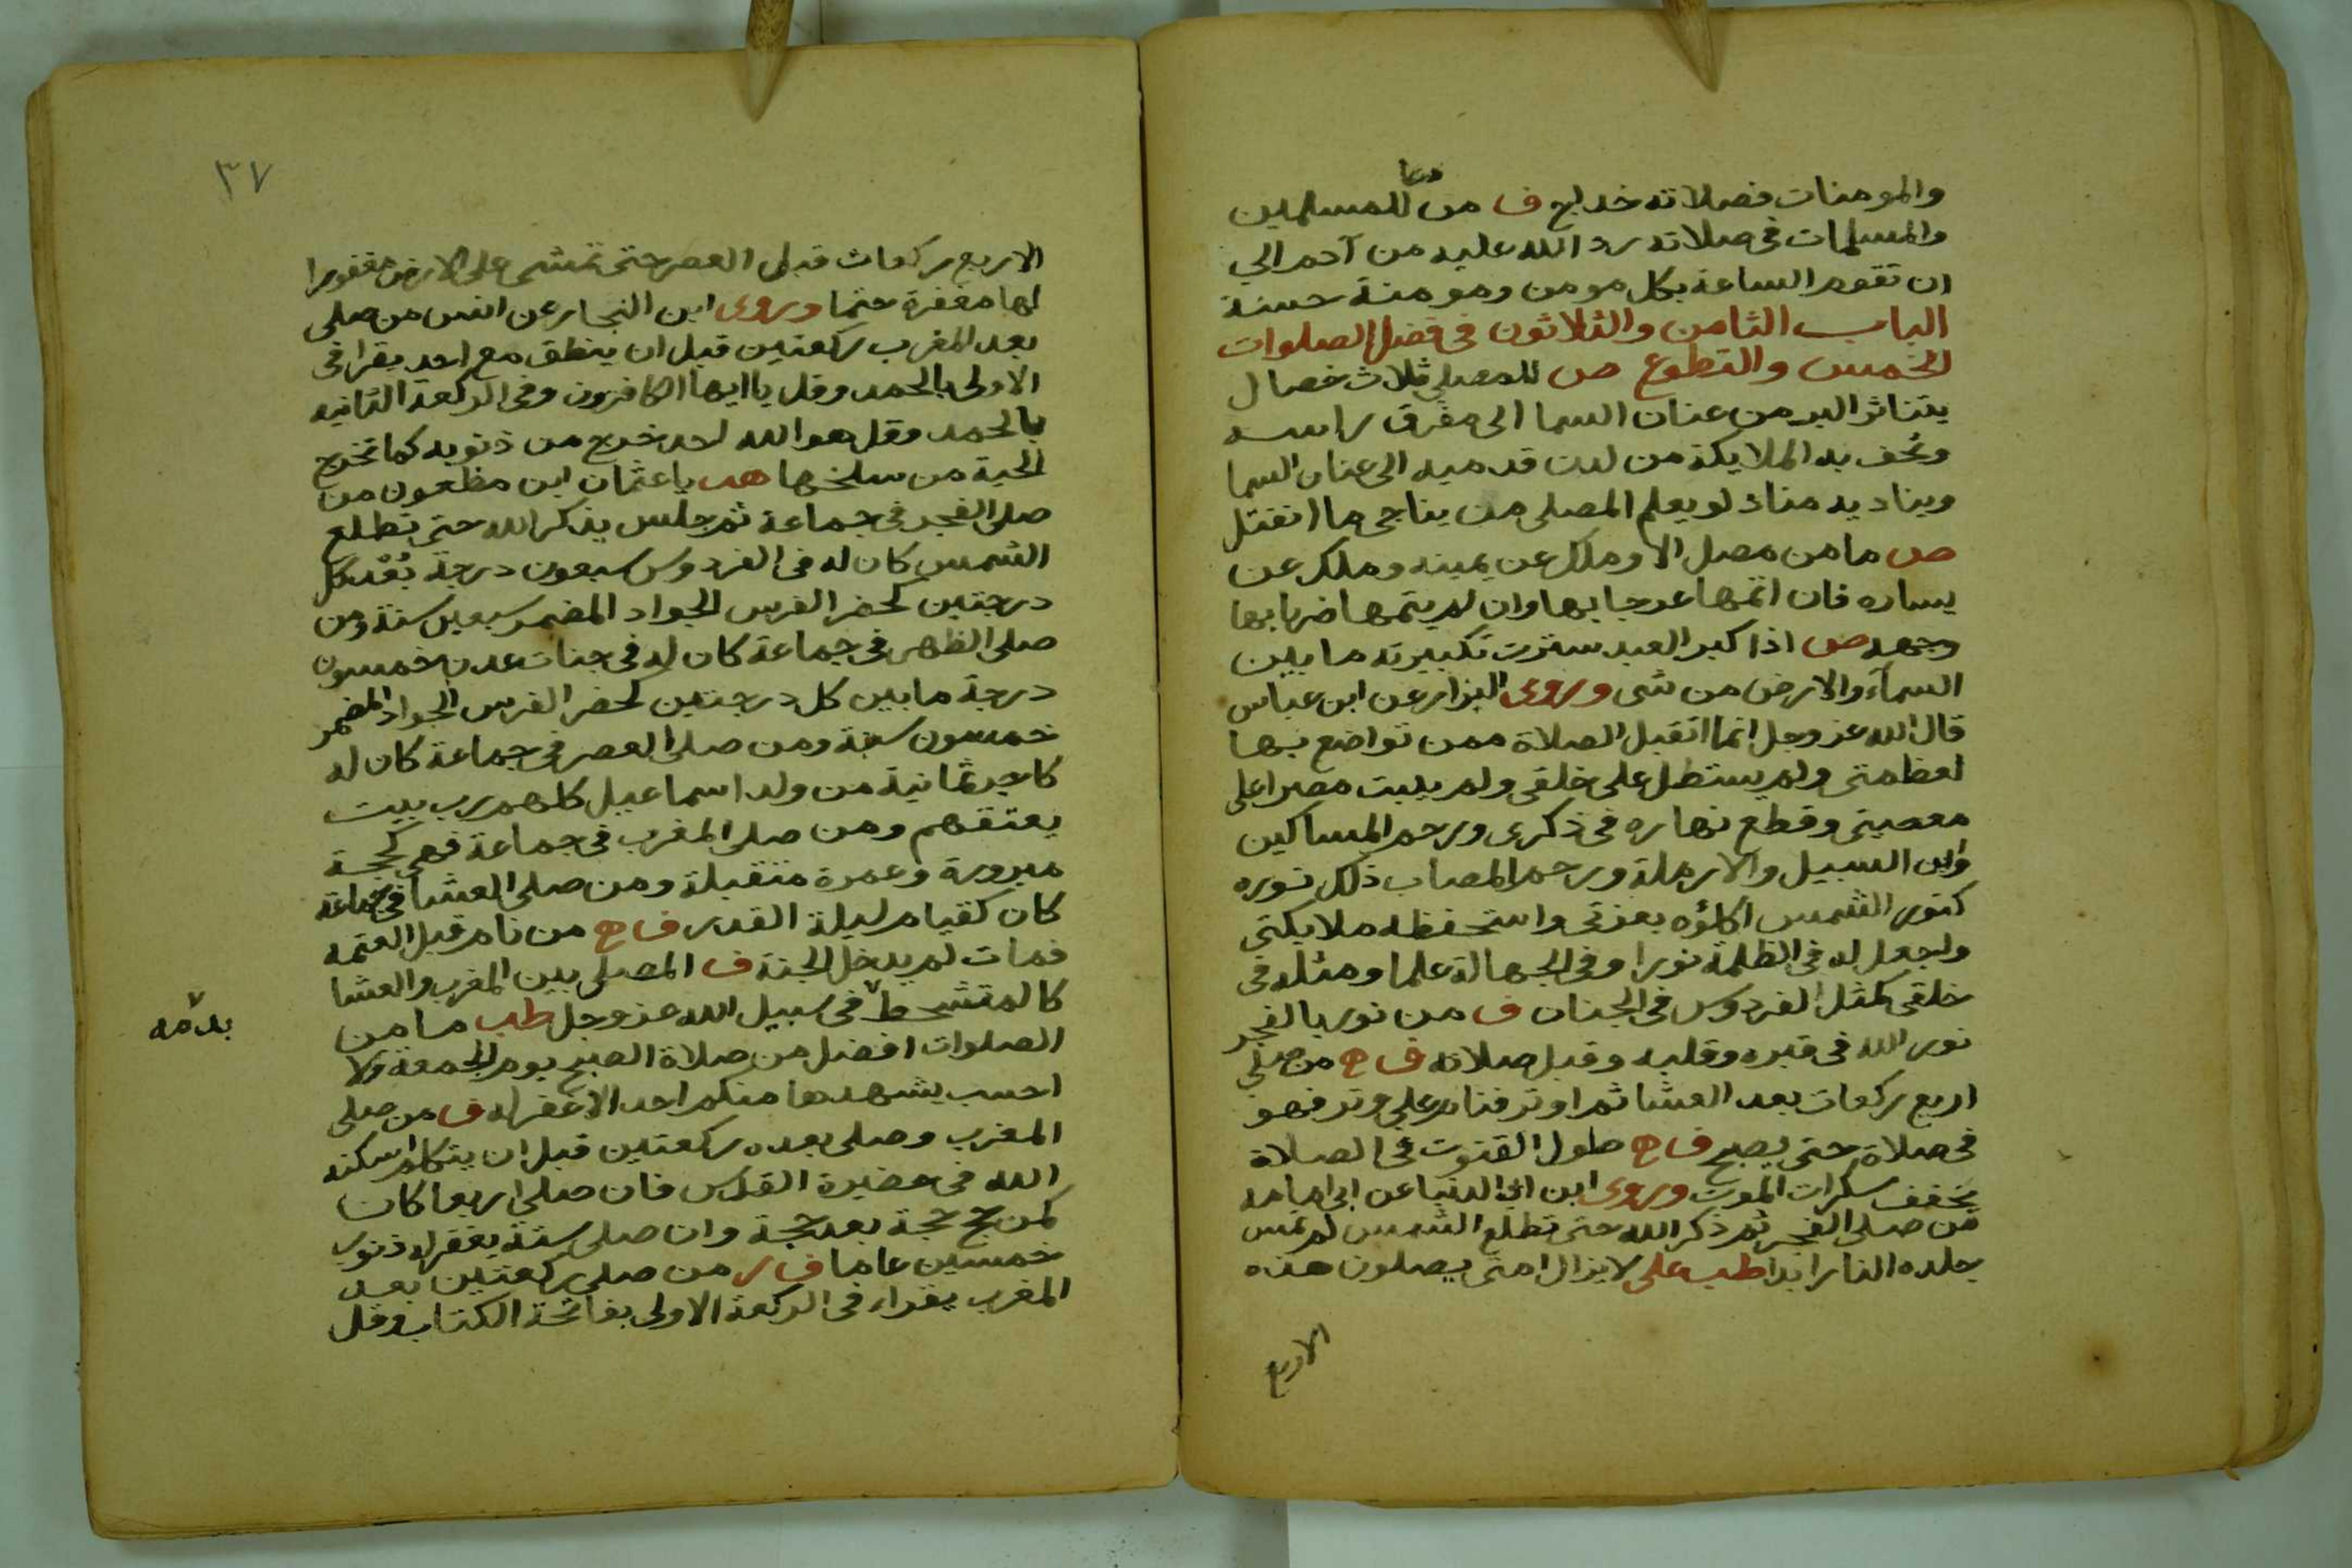 والمومنات فصلاته خداج ف من دعا للمسلمين
والمسلمات فى صلاته رد الله عليه من آدم الي
ان تقوم الساعة بكل مومن ومومنة حسنة
الباب الثامن والثلاثون فى فضل الصلوات
الخمس والتطوع ص للمصلي ثلاث خصال
يتناثر البر من عنان السما الى مفرق راسه
وتحف به الملايكة من لدن قدميه الى عنان السما
ويناديه مناد لو يعلم المصلى من يناجى ما انفتل
ص ما من مصل الا وملك عن يمينه وملك عن
يساره فان اتمها عرجا بها وان لم يتمها ضربا بها
وجهه ص اذا كبر العبد سترت تكبيرته ما بين
السمآء والارض من شى وروى البزار عن ابن عباس
قال الله عز وجل انما اتقبل الصلاة ممن تواضع بها
لعظمتى ولم يستطل على خلقى ولم يبت مصرا على
معصيتى وقطع نهاره فى ذكرى ورحم المساكين
وابن السبيل والارملة ورحم المصاب ذلك نوره
كنور الشمس اكلؤه بعزتى واستحفظه ملايكتى
واجعل له فى الظلمة نورا وفى الجهالة علما ومثله فى
خلقى كمثل الفردوس فى الجنان ف من نور بالفجر
نور الله فى قبره وقلبه وقبل صلاته ف ح من صلى
اربع ركعات بعد العشا ثم اوتر فنام على وتر فهو
فى صلاة حتى يصبح ف ح طول القنوت فى الصلاة
يخفف سكرات الموت وروى ابن ابي الدنيا عن ابى امامه
من صلى الفجر ثم ذكر الله حتى تطلع الشمس لم تمس
جلده النار ابدا طب على لا يزال امتى يصلون هذه
الاربع
٣٧
الاربع ركعات قبل العصر حتى تمشى على الارض مغفورا
لها مغفرة حتما وروى ابن النجار عن انس من صلى
بعد المغرب ركعتين قبل ان ينطق مع احد يقرا فى
الاولى بالحمد وقل ياايها الكافرون وفى الركعة الثانيه
بالحمد وقل هو الله احد خرج من ذنوبه كما تخرج
الحية من سلخها هب يا عثمان ابن مظعون من
صلى الفجر فى جماعة ثم جلس يذكر الله حتى تطلع
الشمس كان له فى الفردوس سبعون درجة بُعْد كل
درجتين كحضر الفرس الجواد المضمر سبعين سنة ومن
صلى الظهر فى جماعة كان له فى جنات عدن خمسون
درجة ما بين كل درجتين كحضر الفرس الجواد المضمر
خمسون سنة ومن صلى العصر فى جماعة كان له
كاجر ثمانية من ولد اسماعيل كلهم رب بيت
يعتقهم ومن صلى المغرب فى جماعة فهى كحجة
مبرورة وعمرة متقبلة ومن صلى العشا فى جماعة
كان كقيام ليلة القدر ف ح من نام قبل العتمه
فمات لم يدخل الجنة ف المصلى بين المغرب والعشا
كالمتشحط ٧ فى سبيل الله عز وجل طب ما من
٧ بدمه
الصلوات افضل من صلاة الصبح يوم الجمعة ولا
احسب يشهدها منكم احد الا غفر له ف من صلى
المغرب وصلى بعده ركعتين قبل ان يتكلم اسكنه
الله فى حضيرة القدس فان صلى اربعا كان
كمن حج حجة بعد حجة وان صلى ستة يغفر له ذنوب
خمسين عاما ف ر من صلى ركعتين بعد
المغرب يقراء فى الركعة الاولى بفاتحة الكتاب وقل